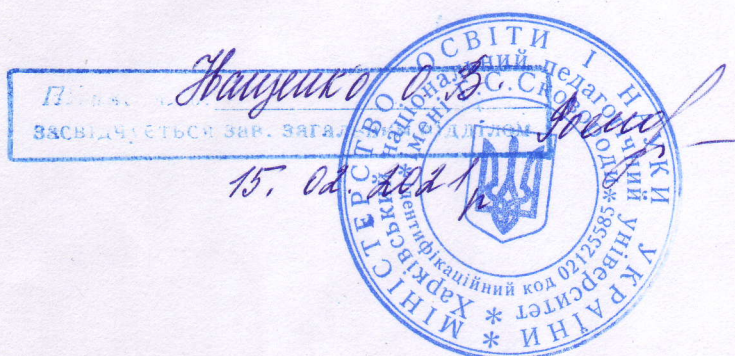 Нащенко О.В.
засвідчується зав. загальним відділом
15. 02. 2021 р
МІНІСТЕРСТВО ОСВІТИ І НАУКИ УКРАЇНИ *
Харківський національний педагогічний університет *
імені Г.С. Сковороди *
ідентифікаційний код 02125585 *